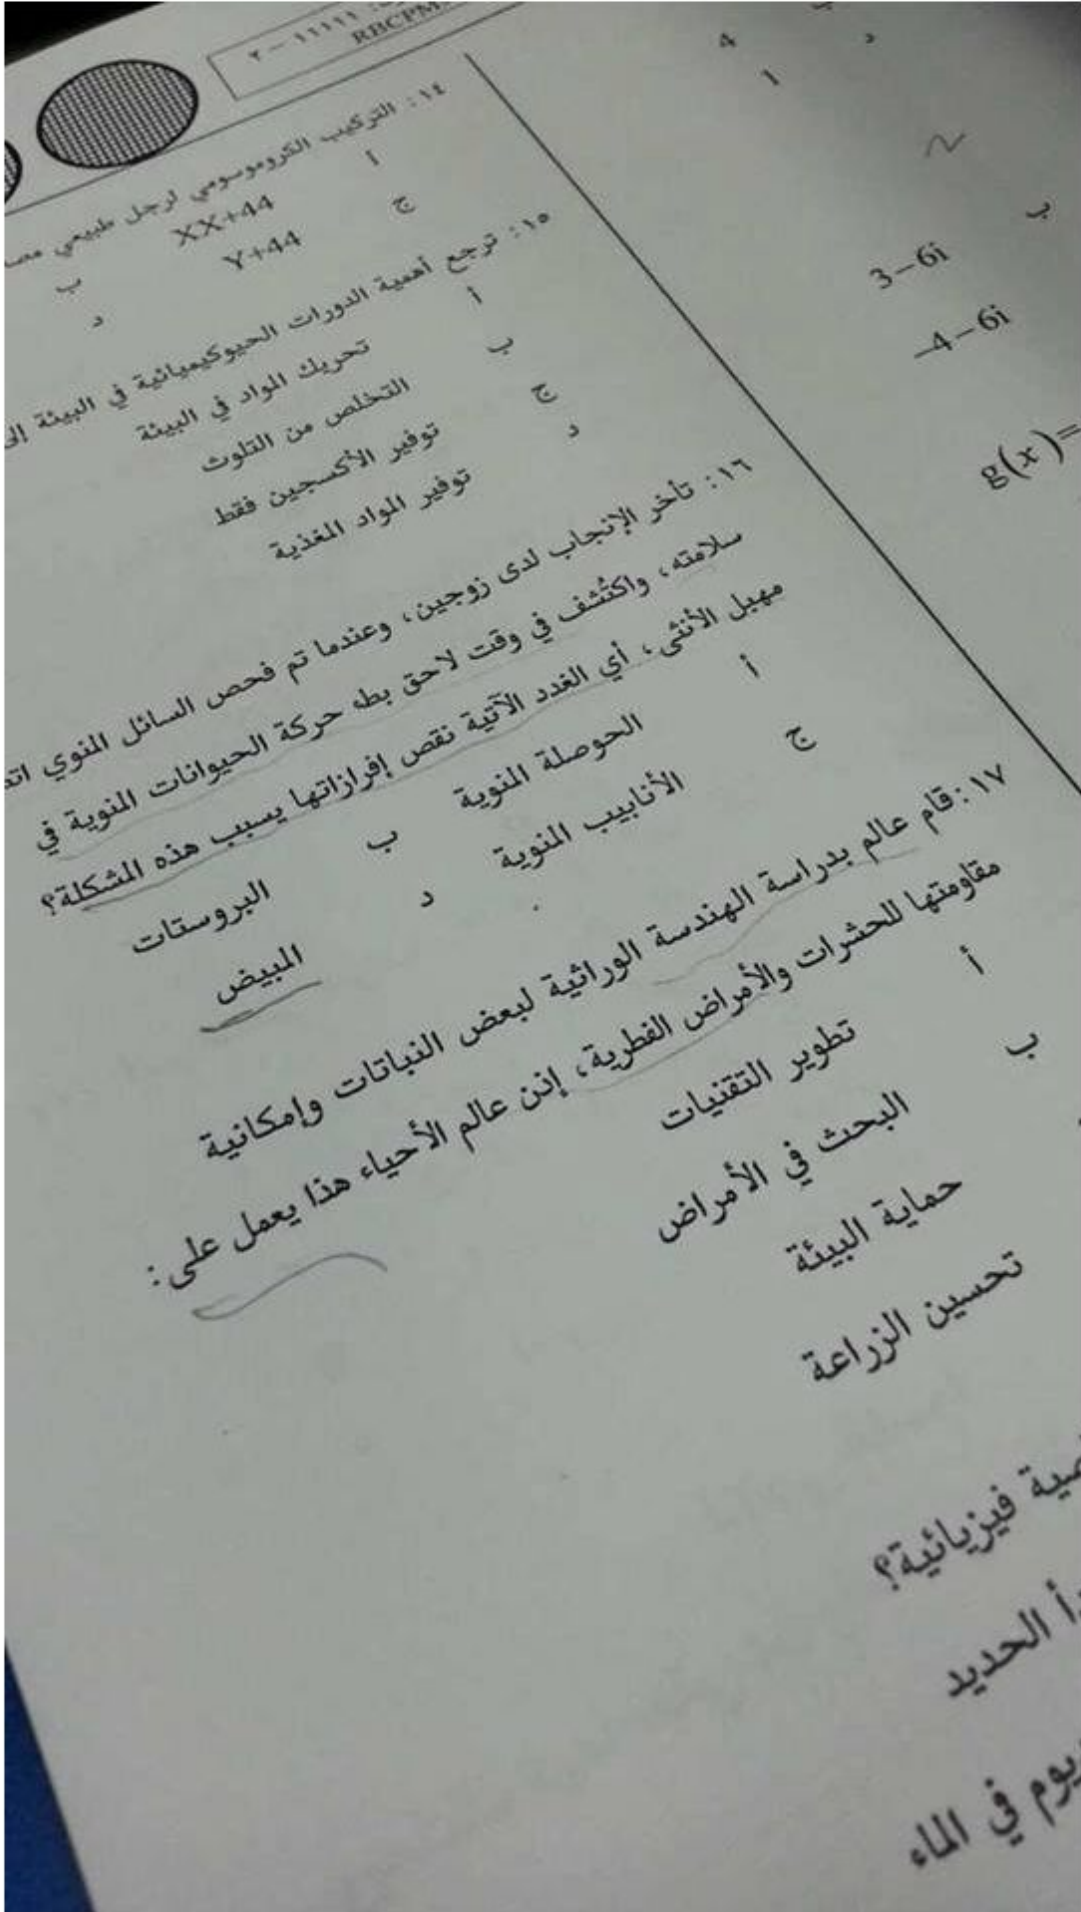 ١١١١١ – ٢
RBCPM
١٤ : التركيب الكروموسومي لرجل طبيعي
أ XX+44 ب
ج Y+44 د
١٥ : ترجع أهمية الدورات الحيوكيميائية في البيئة إلى
أ تحريك المواد في البيئة
ب التخلص من التلوث
ج توفير الأكسجين فقط
د توفير المواد المغذية
١٦ : تأخر الإنجاب لدى زوجين، وعندما تم فحص السائل المنوي
سلامته، واكتُشف في وقت لاحق بطء حركة الحيوانات المنوية في
مهبل الأنثى، أي الغدد الآتية نقص إفرازاتها يسبب هذه المشكلة؟
أ الحوصلة المنوية ب البروستات
ج الأنابيب المنوية د المبيض
١٧ : قام عالم بدراسة الهندسة الوراثية لبعض النباتات وإمكانية
مقاومتها للحشرات والأمراض الفطرية، إذن عالم الأحياء هذا يعمل على :
أ تطوير التقنيات
ب البحث في الأمراض
حماية البيئة
تحسين الزراعة
4 د
1
ب
3 – 6i
–4 – 6i
g(x)=
فيزيائية؟
الحديد
في الماء